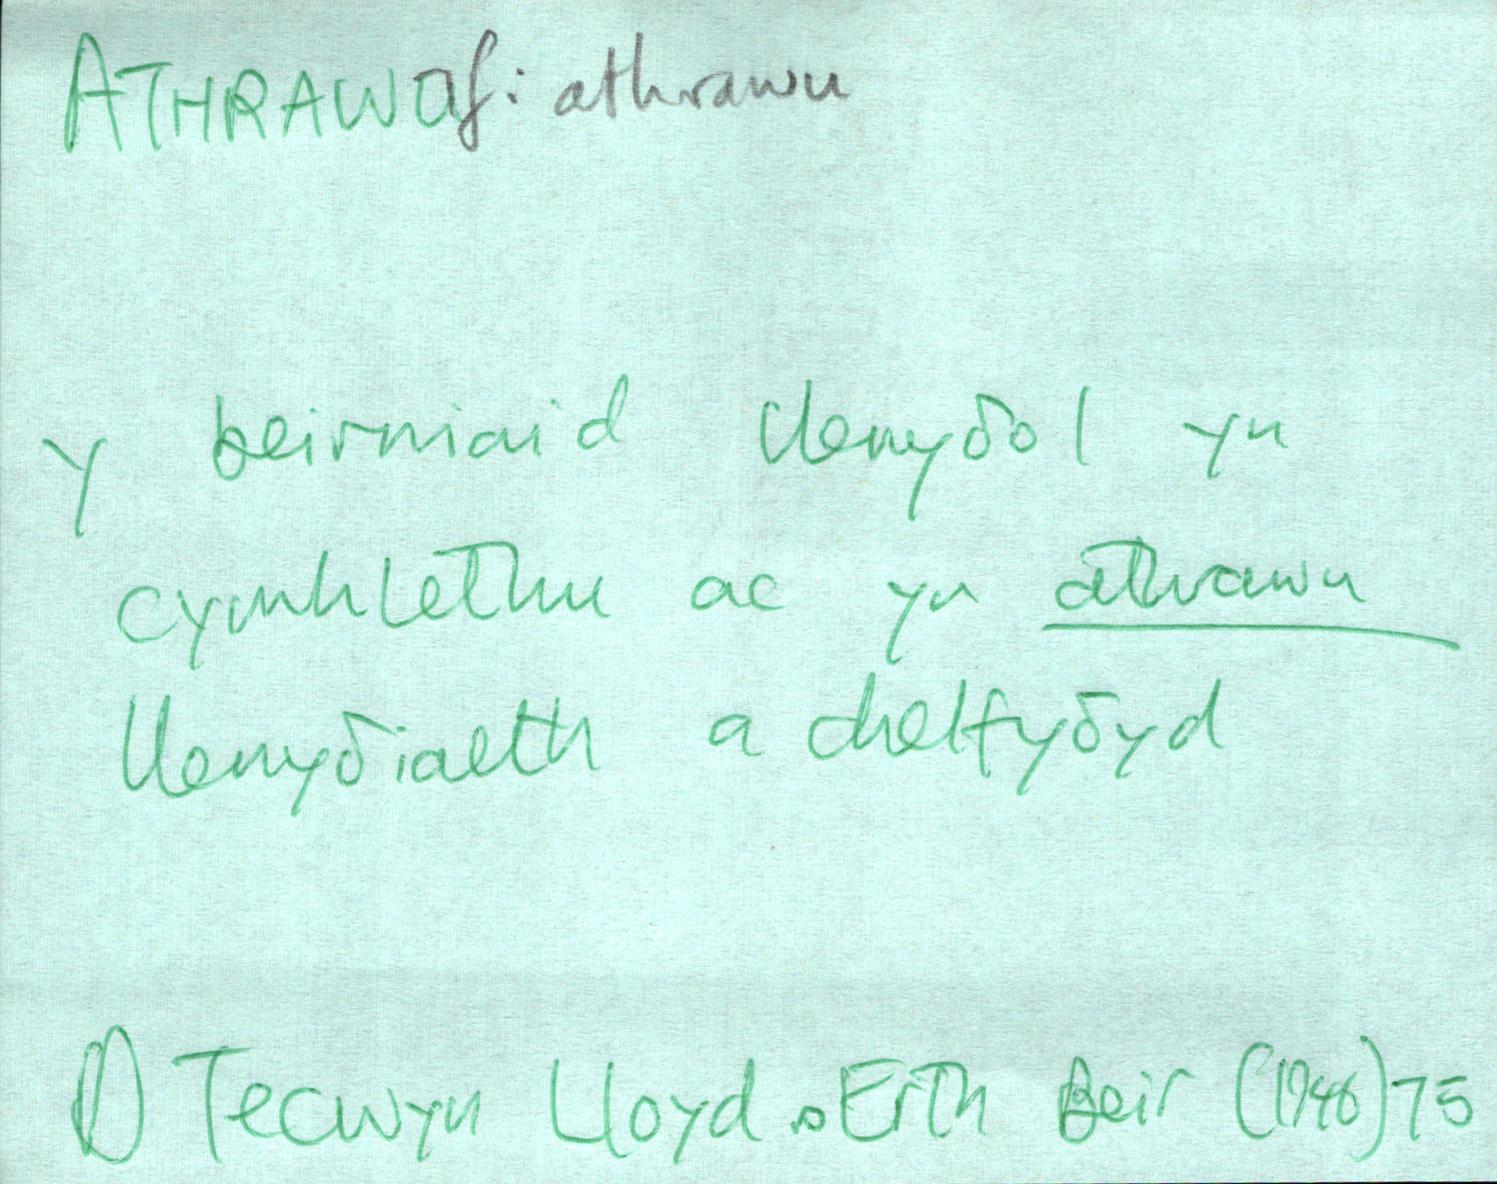 ATHRAWaf: athrawu
y beirniaid llenyδol yn
cymhlethu ac yn athrawu
llenyδiaeth a chelfyδyd
D Tecwyn Lloyd. Erth Beir (1946) 75